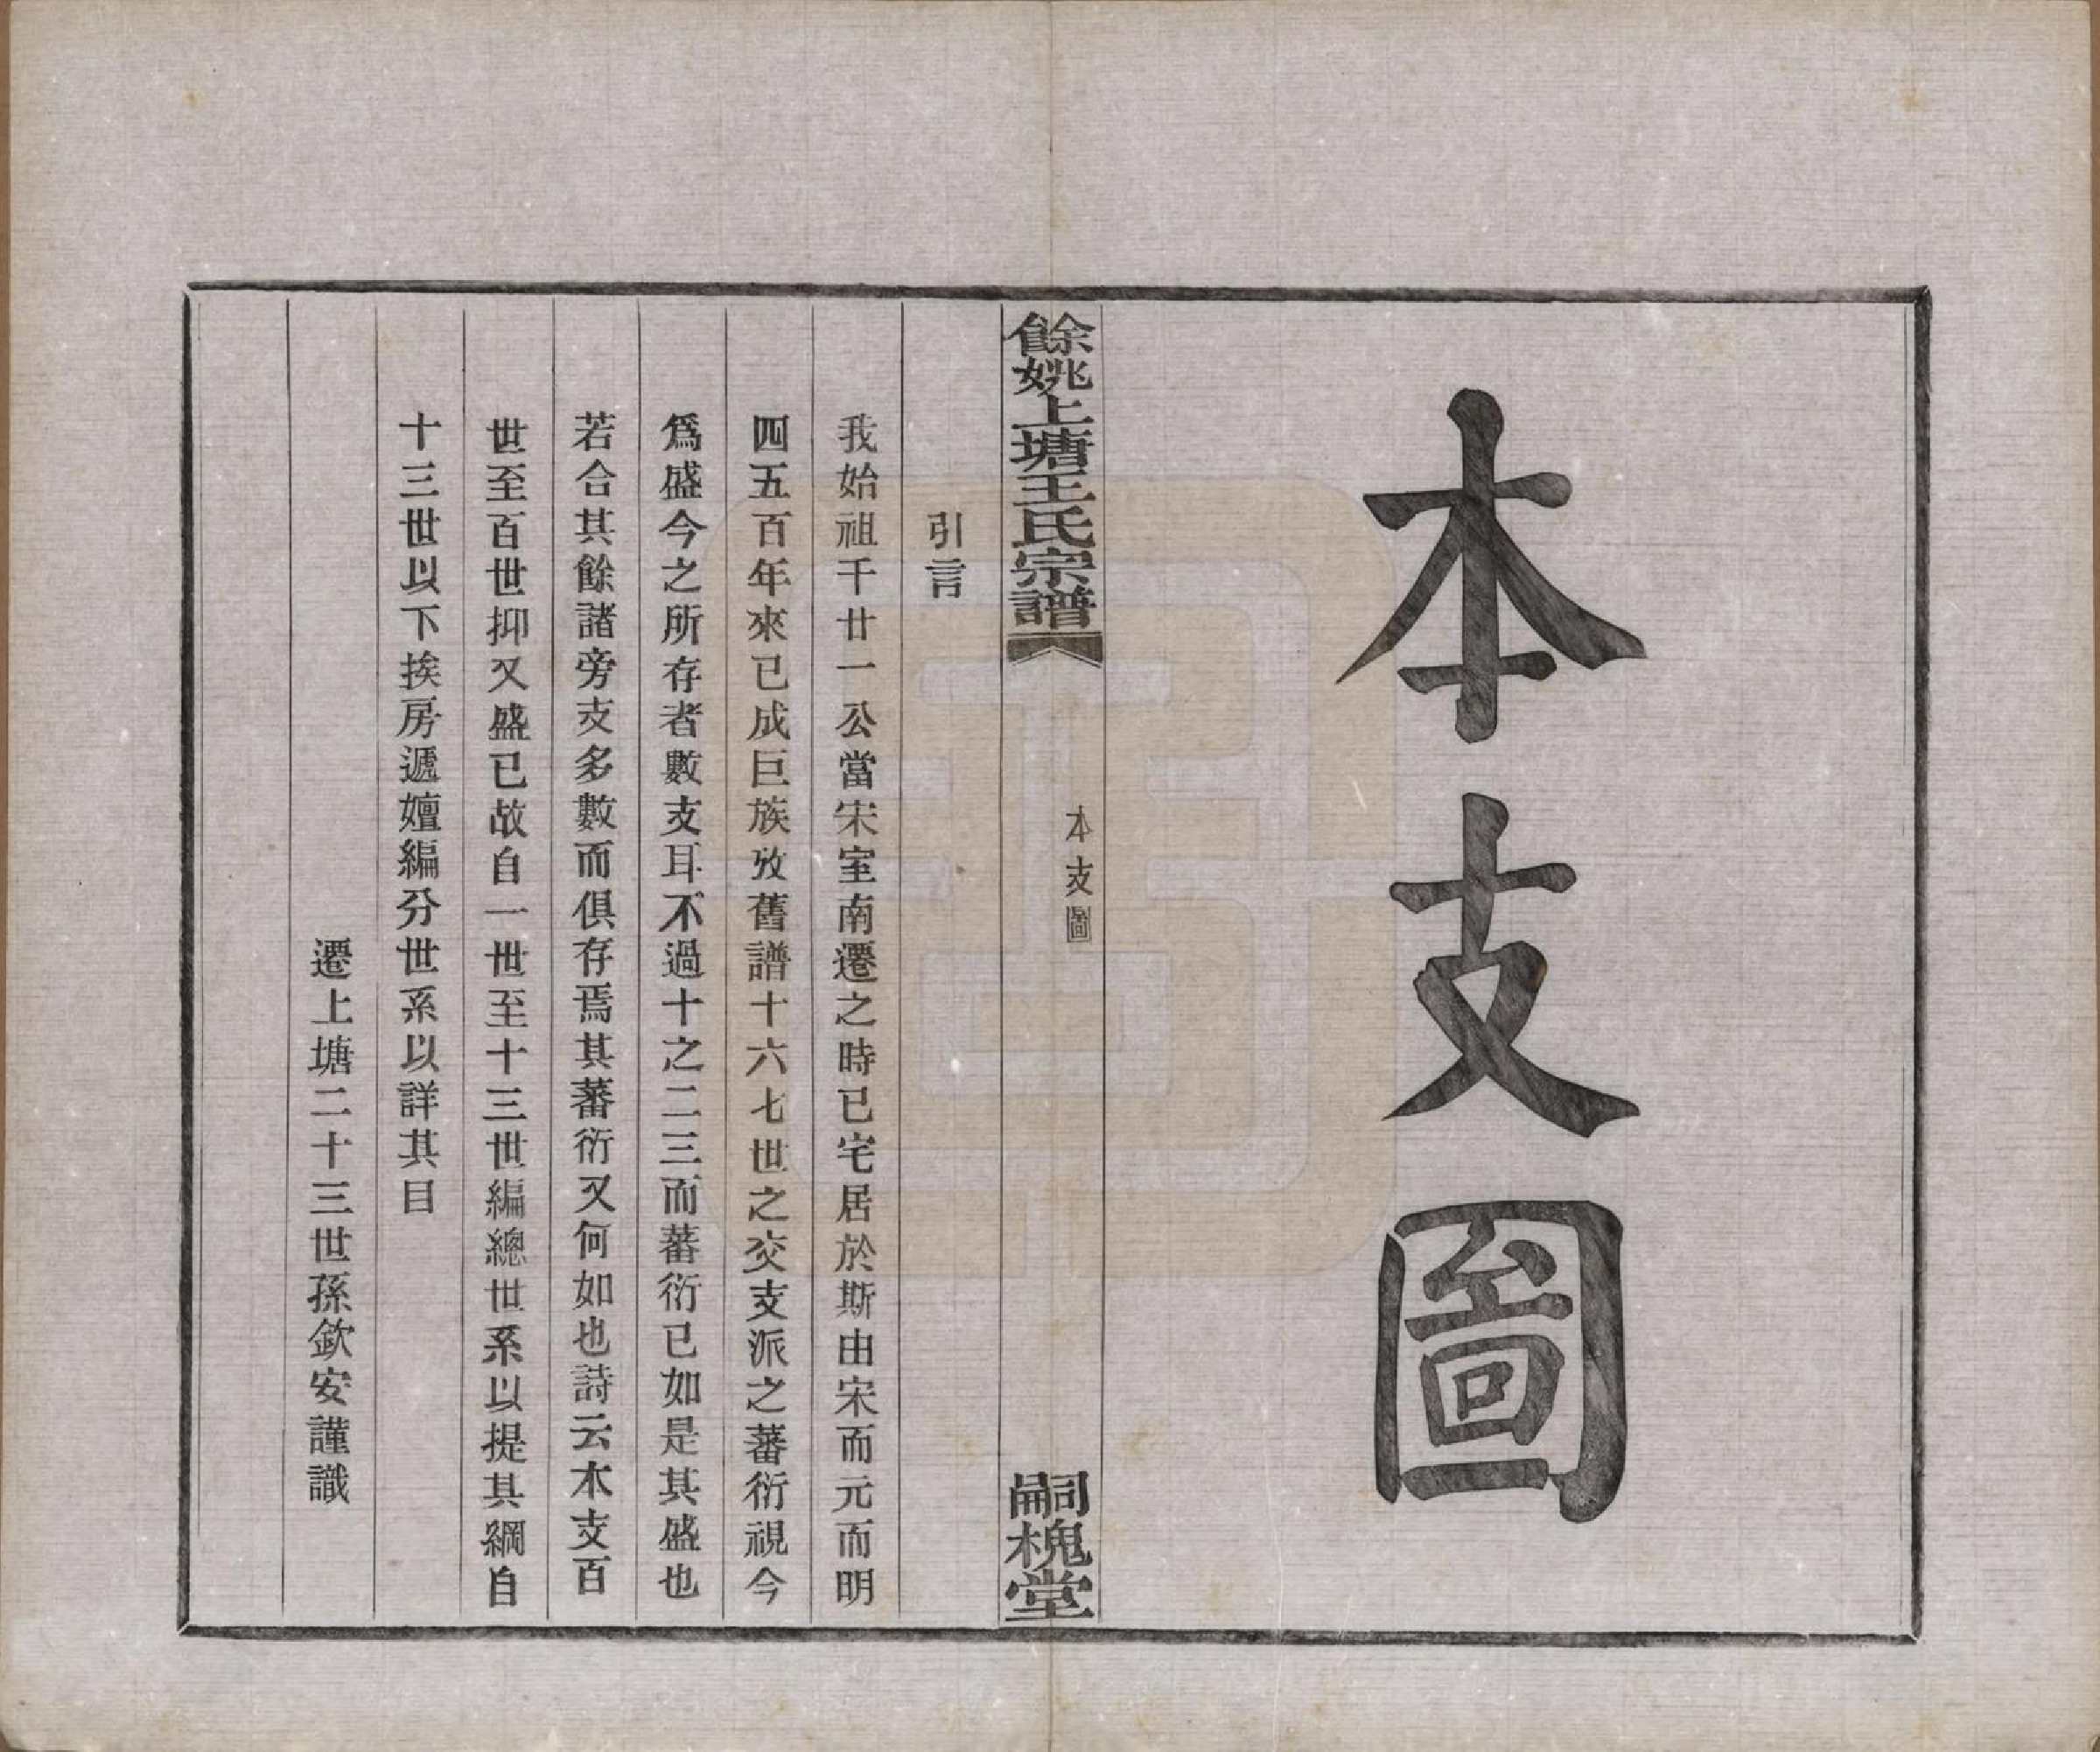 本支圖
餘姚上塘王氏宗譜
本支圖
嗣槐堂
引言
我始祖千廿一公當宋室南遷之時已宅居於斯由宋而元而明
四五百年來已成巨族攷舊譜十六七世之交支派之蕃衍視今
爲盛今之所存者數支耳不過十之二三而蕃衍已如是其盛也
若合其餘諸旁支多數而俱存焉其蕃衍又何如也詩云本支百
世至百世抑又盛已故自一世至十三世編總世系以提其綱自
十三世以下挨房遞嬗編分世系以詳其目
遷上塘二十三世孫欽安謹識